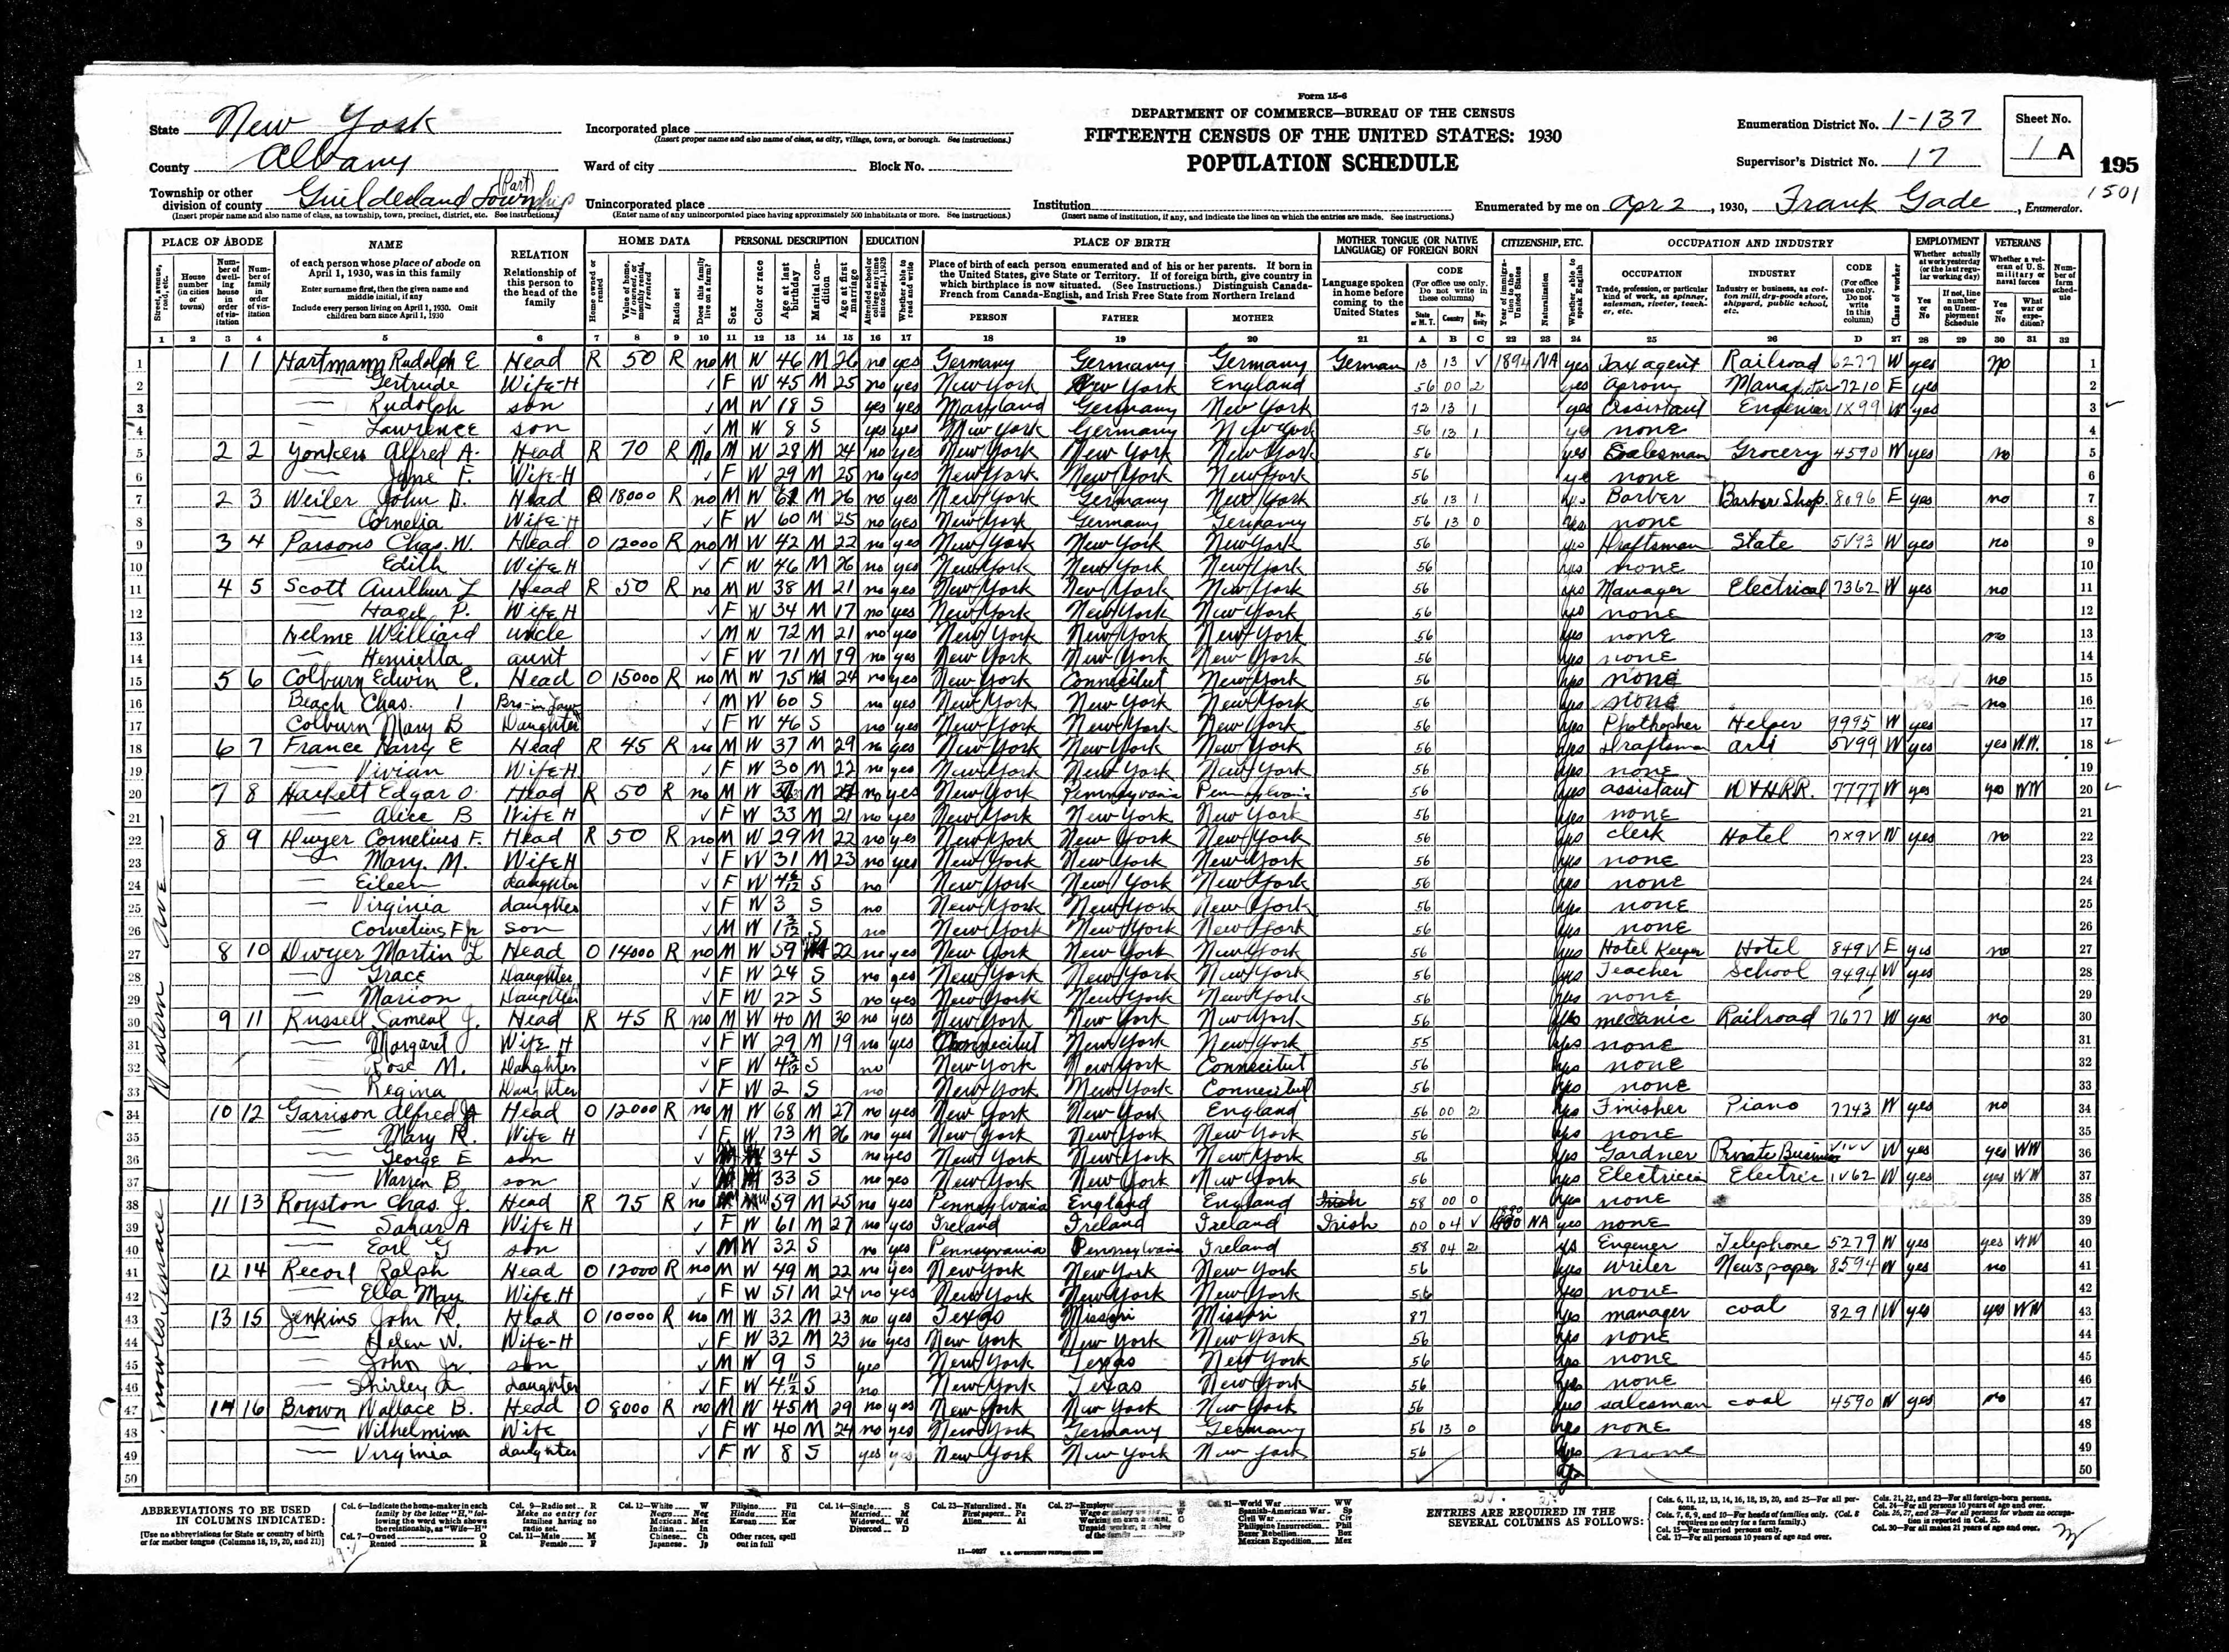 Form 15-6
State New York
Incorporated place
(Insert proper name and also name of class, as city, village, town, or borough. See instructions.)
DEPARTMENT OF COMMERCE—BUREAU OF THE CENSUS
FIFTEENTH CENSUS OF THE UNITED STATES: 1930
POPULATION SCHEDULE
Enumeration District No. 1-137
Sheet No.
1 A
195
1501
County Albany
Ward of city Block No.
Supervisor's District No. 17
Township or other division of county Guilderland Township (Part)
(Insert proper name and also name of class, as township, town, precinct, district, etc. See instructions.)
Unincorporated place
(Enter name of any unincorporated place having approximately 500 inhabitants or more. See instructions.)
Institution
(Insert name of institution, if any, and indicate the lines on which the entries are made. See instructions.)
Enumerated by me on Apr 2, 1930, Frank Gade, Enumerator.
PLACE OF ABODE NAME RELATION HOME DATA PERSONAL DESCRIPTION EDUCATION PLACE OF BIRTH MOTHER TONGUE (OR NATIVE LANGUAGE) OF FOREIGN BORN CITIZENSHIP, ETC. OCCUPATION AND INDUSTRY EMPLOYMENT VETERANS
1 2 3 4 5 6 7 8 9 10 11 12 13 14 15 16 17 18 19 20 21 A B C 22 23 24 25 26 D 27 28 29 30 31 32
1 1 1 Hartmann Rudolph E Head R 50 R no M W 46 M 26 no yes Germany Germany Germany German 13 13 V 1894 NA yes Tax agent Railroad 6277 W yes no 1
2 Gertrude Wife-H F W 45 M 25 no yes New York New York England 56 00 2 yes 7210 E yes 2
3 Rudolph son M W 18 S yes yes Maryland Germany New York 72 13 1 yes Assistant Engenier 1X99 W yes 3
4 Lawrence son M W 8 S yes yes New York Germany New York 56 13 1 yes none 4
5 2 2 Yonkers Alfred A. Head R 70 R No M W 28 M 24 no yes New York New York New York 56 yes Salesman Grocery 4590 W yes no 5
6 Jane F. Wife-H F W 29 M 25 no yes New York New York New York 56 yes none 6
7 2 3 Weiler John D. Head O 18000 R no M W 61 M 26 no yes New York Germany New York 56 13 1 yes Barber Barber Shop 8096 E yes no 7
8 Cornelia Wife H F W 60 M 25 no yes New York Germany Germany 56 13 0 yes none 8
9 3 4 Parsons Chas. W. Head O 12000 R no M W 42 M 22 no yes New York New York New York 56 yes Draftsman State 5V93 W yes no 9
10 Edith Wife H F W 46 M 26 no yes New York New York New York 56 yes none 10
11 4 5 Scott Aurthur L Head R 50 R no M W 38 M 21 no yes New York New York New York 56 yes Manager Electrical 7362 W yes no 11
12 Hazel P. Wife H F W 34 M 17 no yes New York New York New York 56 yes none 12
13 Helme Williard uncle M W 72 M 21 no yes New York New York New York 56 yes none no 13
14 Henriella aunt F W 71 M 19 no yes New York New York New York 56 yes none 14
15 5 6 Colburn Edwin C. Head O 15000 R no M W 75 Wd 24 no yes New York Connecitut New York 56 yes none no 15
16 Beach Chas. I Bro-in-Law M W 60 S no yes New York New York New York 56 yes none no 16
17 Colburn Mary B Daughter F W 46 S no yes New York New York New York 56 yes Phothopher Helper 9995 W yes 17
18 6 7 France Harry E Head R 45 R no M W 37 M 29 no yes New York New York New York 56 yes Draftsman 5V99 W yes yes W.W. 18
19 Vivian Wife H F W 30 M 22 no yes New York New York New York 56 yes none 19
20 7 8 Hackett Edgar O. Head R 50 R no M W M no yes New York Pennsylvania Pennsylvania 56 yes assistant D & H RR. 7777 W yes yes WW 20
21 Alice B Wife H F W 33 M 21 no yes New York New York New York 56 yes none 21
22 8 9 Dwyer Cornelius F. Head R 50 R no M W 29 M 22 no yes New York New York New York 56 yes clerk Hotel 7X9V W yes no 22
23 Mary M. Wife H F W 31 M 23 no yes New York New York New York 56 yes none 23
24 Eileen daughter F W 4 6/12 S no New York New York New York 56 yes none 24
25 Virginia daughter F W 3 S no New York New York New York 56 yes none 25
26 Cornelius F Jr son M W 1 3/12 S no New York New York New York 56 yes none 26
27 8 10 Dwyer Martin L Head O 14000 R no M W 59 22 no yes New York New York New York 56 yes Hotel Keeper Hotel 849V E yes no 27
28 Grace Daughter F W 24 S no yes New York New York New York 56 yes Teacher School 9494 W yes 28
29 Marion Daughter F W 22 S no yes New York New York New York 56 yes none 29
30 9 11 Russell Sameal J. Head R 45 R no M W 40 M 30 no yes New York New York New York 56 yes mecanic Railroad 7677 W yes no 30
31 Margaret J Wife H F W 29 M 19 no yes Connecitut New York New York 55 yes none 31
32 Rose M. Daughter F W 4 3/12 S no New York New York Connecitut 56 yes none 32
33 Regina Daughter F W 2 S no New York New York Connecitut 56 yes none 33
34 10 12 Garrison Alfred Head O 12000 R no M W 68 M 27 no yes New York New York England 56 00 2 yes Finisher Piano 7743 W yes no 34
35 Mary R. Wife H F W 73 M 26 no yes New York New York New York 56 yes none 35
36 George E son M W 34 S no yes New York New York New York 56 yes Gardner Private Business VIVV W yes yes WW 36
37 Warren B son M W 33 S no yes New York New York New York 56 yes Electricia Electric 1V62 W yes yes WW 37
38 11 13 Royston Chas. J. Head R 75 R no M W 59 M 25 no yes Pennsylvania England England Irish 58 00 0 yes none 38
39 A Wife H F W 61 M 27 no yes Ireland Ireland Ireland Irish 00 04 V 1890 NA yes none 39
40 Earl G son M W 32 S no yes Pennsylvania Pennsylvania Ireland 58 04 2 yes Engener Telephone 5279 W yes yes WW 40
41 12 14 Record Ralph Head O 12000 R no M W 49 M 22 no yes New York New York New York 56 yes writer Newspaper 8594 W yes no 41
42 Ella May Wife H F W 51 M 24 no yes New York New York New York 56 yes none 42
43 13 15 Jenkins John R. Head O 10000 R no M W 32 M 23 no yes Texas Missori Missori 87 yes manager coal 8291 W yes yes WW 43
44 Helen W. Wife-H F W 32 M 23 no yes New York New York New York 56 yes none 44
45 John Jr. son M W 9 S yes New York Texas New York 56 yes none 45
46 Shirley A daughter F W 4 11/12 S no New York Texas New York 56 yes none 46
47 14 16 Brown Wallace B. Head O 8000 R no M W 45 M 29 no yes New York New York New York 56 yes salesman coal 4590 W yes no 47
48 Wilhelmina Wife F W 40 M 24 no yes New York Germany Germany 56 13 0 yes none 48
49 Virginia daughter F W 8 S yes yes New York New York New York 56 yes none 49
50 50
Western Ave
Knowles Terrace
ABBREVIATIONS TO BE USED IN COLUMNS INDICATED:
[Use no abbreviations for State or country of birth or for mother tongue (Columns 18, 19, 20, and 21)]
Col. 6—Indicate the home-maker in each family by the letter "H," following the word which shows the relationship, as "Wife—H"
Col. 7—Owned O
Rented R
Col. 9—Radio set R
Make no entry for families having no radio set.
Col. 11—Male M
Female F
Col. 12—White W
Negro Neg
Mexican Mex
Indian In
Chinese Ch
Japanese Jp
Filipino Fil
Hindu Hin
Korean Kor
Other races, spell out in full
Col. 14—Single S
Married M
Widowed Wd
Divorced D
Col. 23—Naturalized Na
First papers Pa
Alien Al
Col. 27—Employer E
Col. 31—World War WW
Spanish-American War Sp
Civil War Civ
Philippine Insurrection Phil
Boxer Rebellion Box
Mexican Expedition Mex
ENTRIES ARE REQUIRED IN THE SEVERAL COLUMNS AS FOLLOWS:
Cols. 6, 11, 12, 13, 14, 16, 18, 19, 20, and 25—For all persons.
Cols. 7, 8, 9, and 10—For heads of families only. (Col. 8 requires no entry for a farm family.)
Col. 15—For married persons only.
Col. 17—For all persons 10 years of age and over.
Cols. 21, 22, and 23—For all foreign-born persons.
Col. 24—For all persons 10 years of age and over.
Cols. 26, 27, and 28—For all persons for whom an occupation is reported in Col. 25.
Col. 30—For all males 21 years of age and over.
11—9627 U. S. GOVERNMENT PRINTING OFFICE